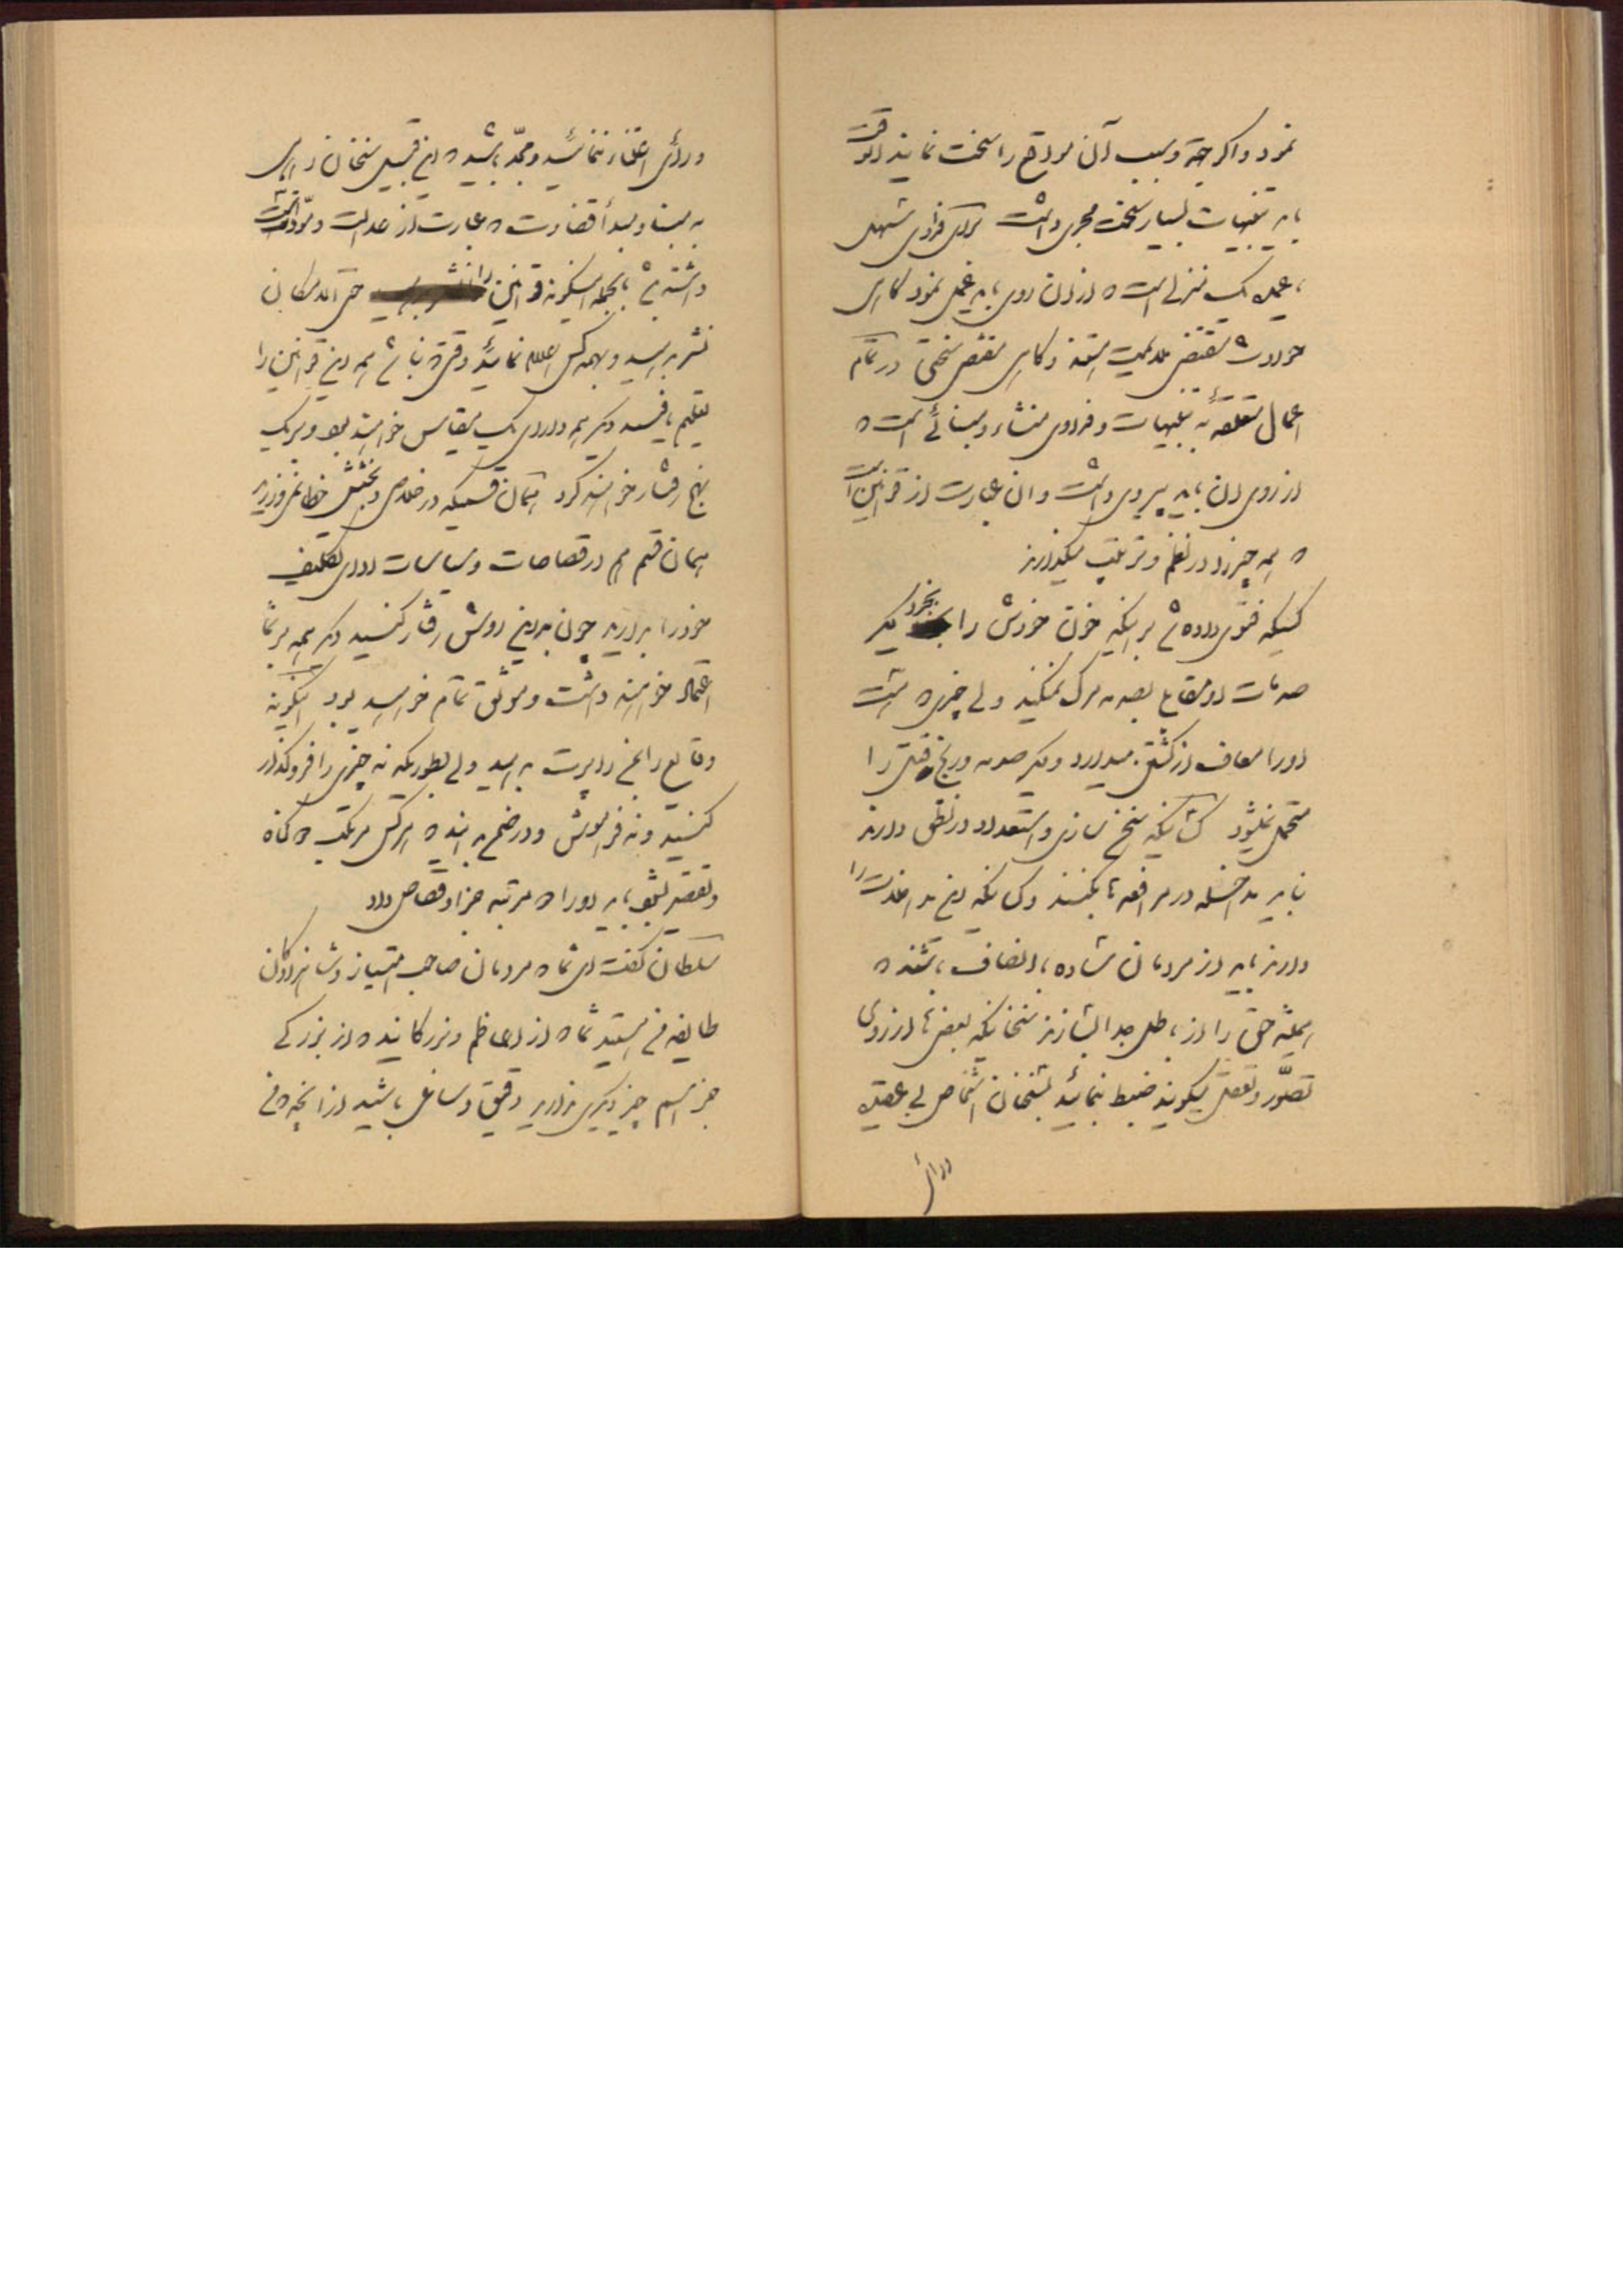 نمود و اگر جهة و سبب آن مواقع را سخت نمایند انوقت
باید تنبیهات بسیار سخت مجری داشت برای فراوی
باعمیه یک منزلی است که از آن روی باید عمل نمود گاهی
حوادث مقتضی ملایمت هستند و گاهی مقتضی سختی در تمام
اعمال متعلقه به تنبیهات و فراوی منشاء و مبنائی است که
از روی آن باید پیروی داشت و آن عبارت از قوانین است
که همه چیز را در نظم و ترتیب میگذارند
کسیکه فتوی داده شد بر اینکه خون خودش را بخرد دیگر
صدمات او مقابل بصدمه مرگ نمیکند ولی چیزی که هست
او را معاف از کشتن میدارد و دیگر صدمه و رنج قتل را
متحمل نمیشود کسانیکه سخن سازی و استعداد در نطق دارند
نباید مداخله در مرافعه ها بکنند و کسانیکه این مداخلت را
دارند باید از مردمان ساده باانصاف باشند که
همیشه حق را از باطل جدا سازند سخنانیکه بعضی ها از روی
تصور و تعقل میگویند ضبط بنمائید بسخنان اشخاص بی عقیده
و رأی
و رأی اعتناء ننمائید و مجد باشید که این قبیل سخنان راهی
به مبنا و مبدأ قضاوت که عبارت از عدالت و مودت است
داشته باشد بالجمله اینگونه قوانین را حتی الامکان
نشر بدهید و بهمه کس اعلام نمائید وقتیکه بنا شد همه این قوانین را
تعلیم یافتند دیگر همه دارای یک مقیاس خواهند بود و بر یک
نهج رفتار خواهند کرد همان قسمیکه در خلاصی و بخشش خطا نمی‌ورزید
همان قسم هم در قصاصات و سیاسات ادای تکلیف
خود را بدارید چون بدین روش رفتار کنید دیگر همه بر شما
اعتماد خواهند داشت و موثق تمام خواهید بود اینگونه
وقایع را بمن راپرت بدهید ولی بطوریکه نه چیزی را فروگذار
کنید و نه فراموش و واضح بدانید که هر کس مرتکب که گناه
و تقصیر بشود باید او را که مرتبه جزا و قصاص داد
سلطان گفت ای شما که مردمان صاحب امتیاز و شاهزادگان
طایفه من هستید شما که از اعاظم و بزرگانید که از بزرگی
جز اسم چیز دیگری ندارید دقیق و ساعی باشید از آنچه که من